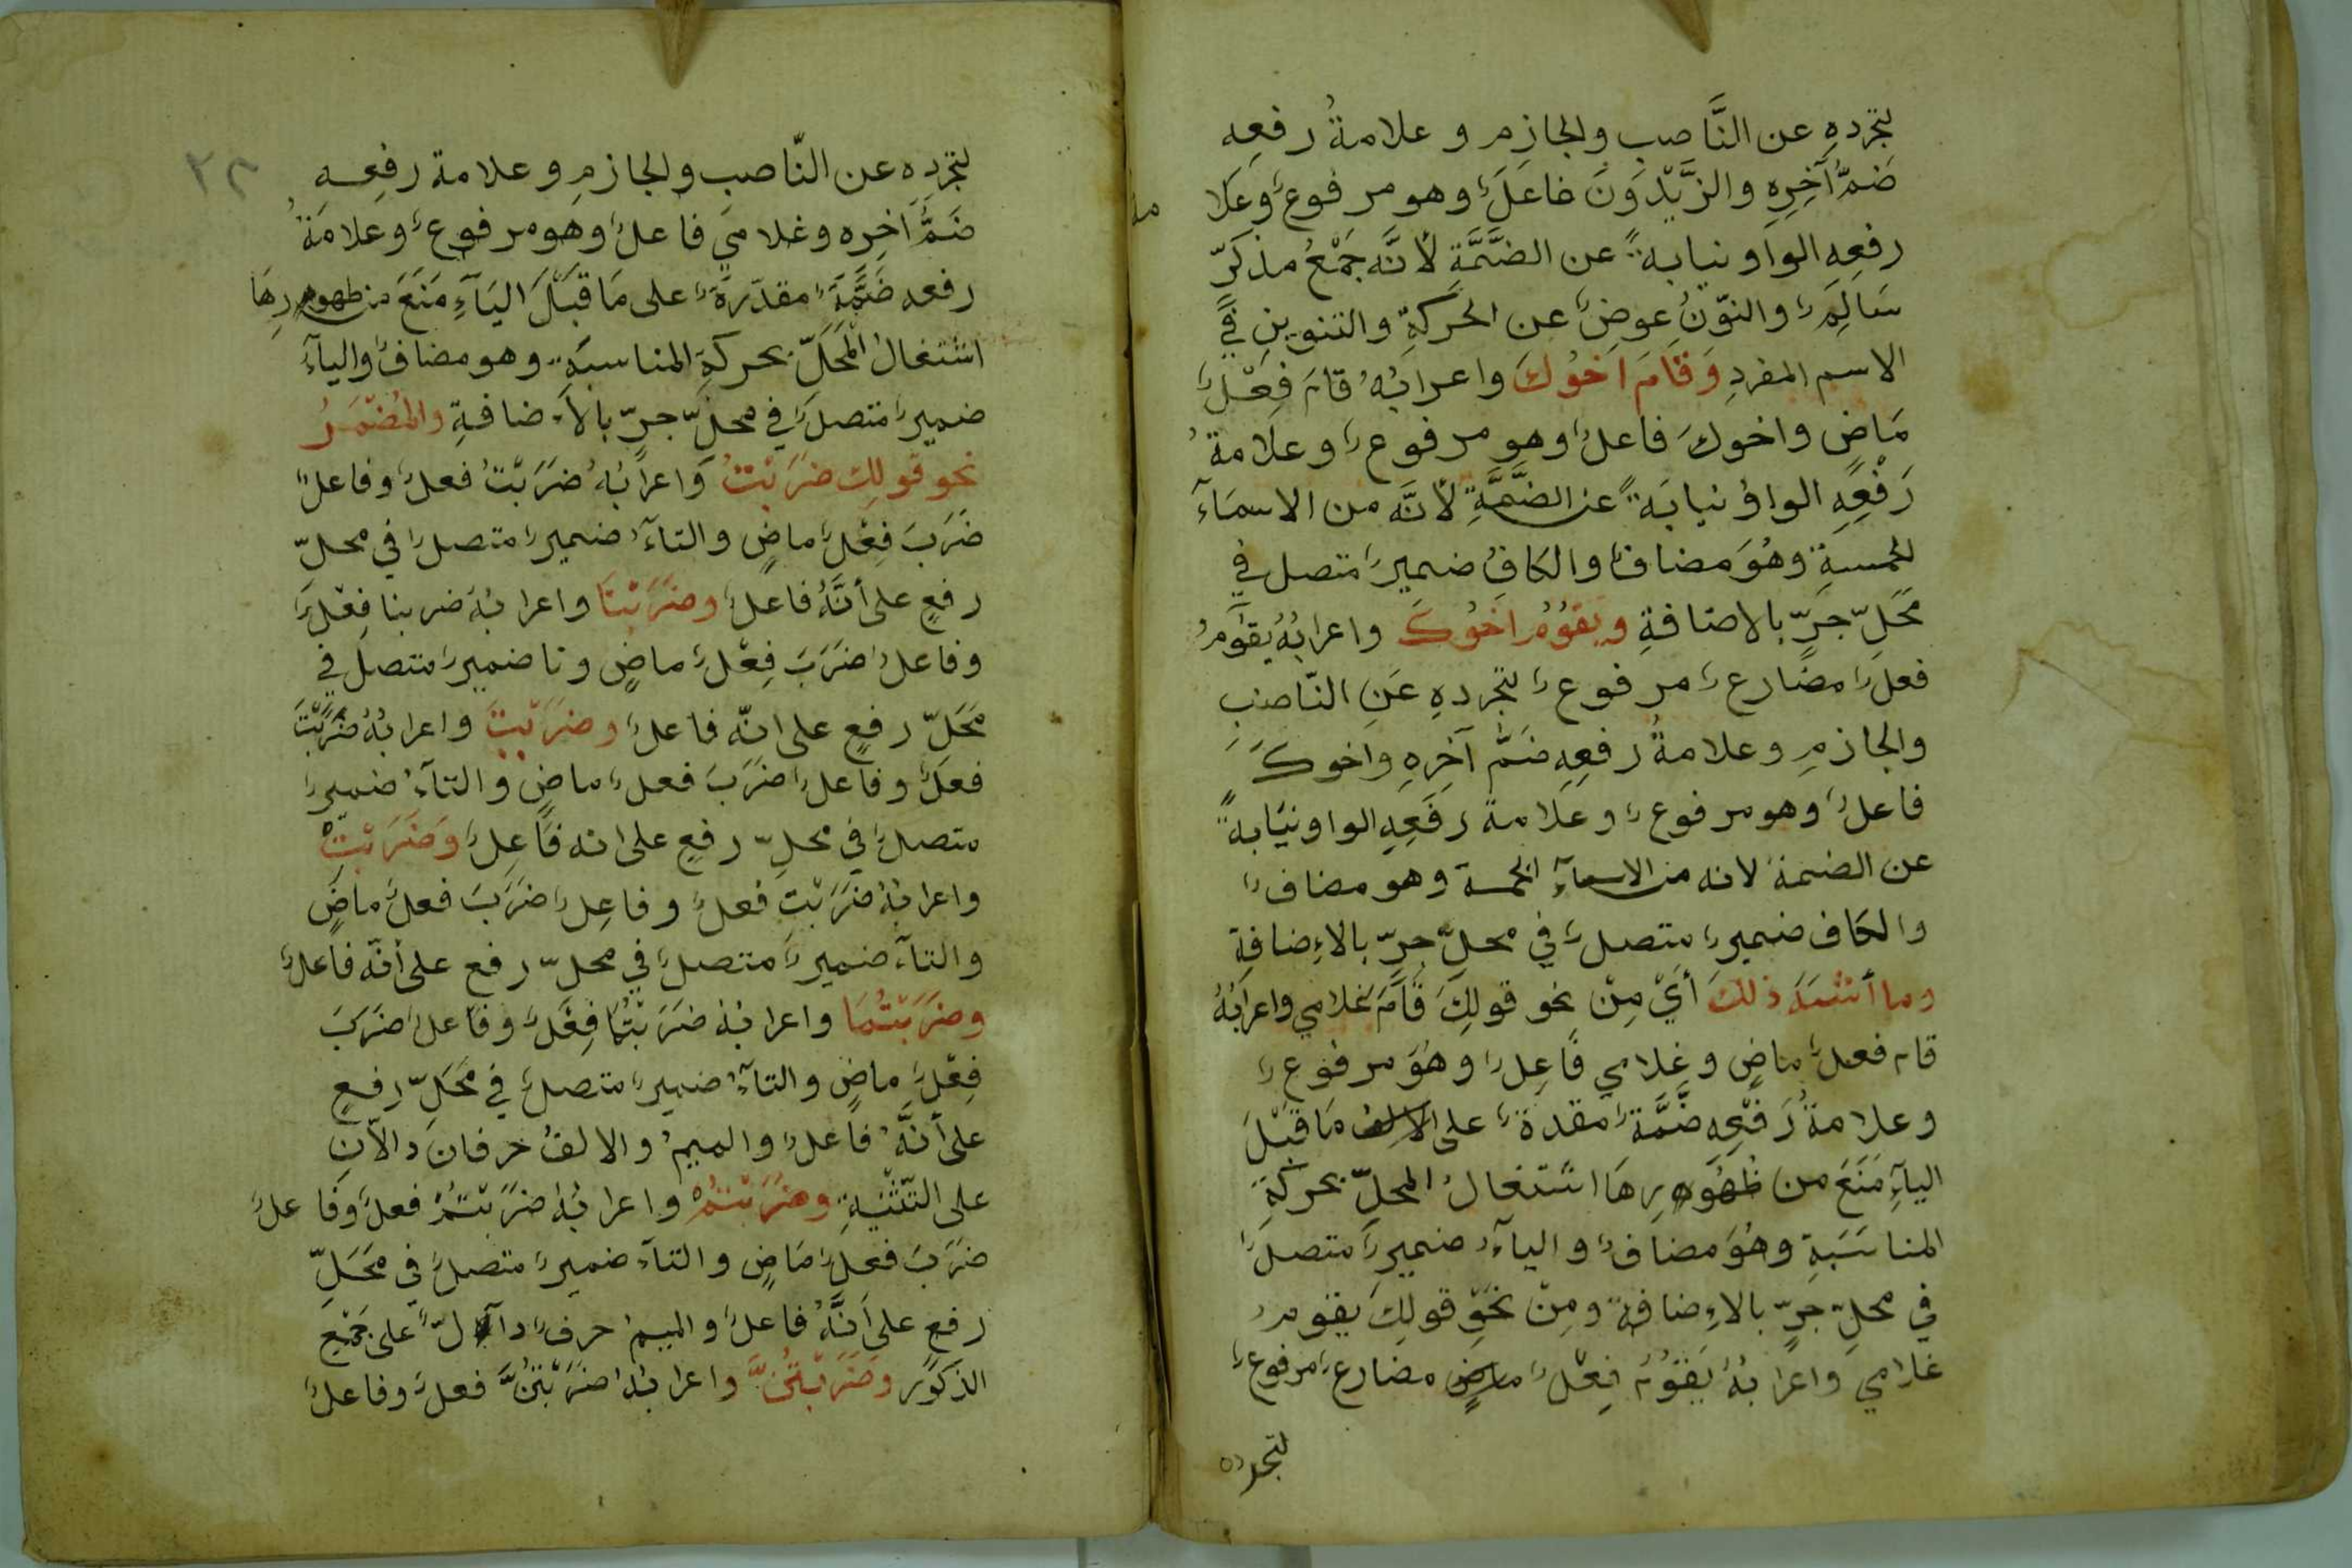 لتجردهِ عن النَّاصب والجازم وعلامةُ رفعِه
ضَمُّ آخِرِه والزَّيْدونَ فاعلٌ وهو مرفوعٌ وعَلا
مة
رفعِهِ الواو نيابةً عن الضَّمَّةِ لأنَّه جَمْعُ مذكرّ
سَالِمٌ والنّونُ عوضٌ عن الحركةِ والتنوينِ في
الاسم المفردِ وَقَامَ اَخُوكَ واعرابُهُ قامَ فِعْلٌ
مَاضٍ واخوكَ فاعلٌ وهو مرفوعٌ وعلامةُ
رَفْعِهِ الواوُ نيابَةً عن الضَّمَّةِ لأنَّه من الاسمَآء
الخمسةِ وهُوَ مضافٌ والكافُ ضميرٌ متصل في
مَحَلِّ جَرٍّ بالاضافةِ ويَقُوْمُ اَخُوكَ واعرابُهُ يقُومُ
فعلٌ مضارعٌ مرفوعٌ لتجردهِ عَنِ النّاصبِ
والجازمِ وعلامةُ رفعِهِ ضَمُّ آخِرِهِ واخوكَ
فاعلٌ وهو مرفوعٌ وعلامة رَفعِهِ الواو نيَابةً
عن الضمة لانه من الاسمآءِ الخمسة وهو مضافٌ
والكاف ضميرٌ متصلٌ في محلِّ جرّ بالاءِضافةِ
وما أشبَهَ ذلكَ أيْ مِنْ نحو قولِكَ قَامَ غلامي واعرابُهُ
قام فعلٌ ماضٍ وغلامي فَاعِلٌ وهُوَ مرفوعٌ
وعلامةُ رَفْعِهِ ضَمَّةٌ مقدةٌ على الالف مَا قَبْلَ
اليآءِ مَنَعَ من ظُهُورِهَا اشتغالُ المحلِّ بحركةِ
المناسَبَةِ وهُوَ مضافٌ واليآءُ ضميرٌ متصلٌ
في محلِّ جرٍّ بالاءِضافة ومِنْ نحوِ قولِكَ يقومُ
غلامي واعرابُهُ يَقُوْمُ فِعْلٌ ماضٍ مضارعٌ مرفوعٌ
لتجرده
٢٣
لتجردِه عن النّاصبِ والجازمِ وعلامة رفعِهِ
ضَمُّ اخِرِه وغلامي فاعلٌ وهو مرفوعٌ وعلامَةُ
رفعه ضَمَّةٌ مقدّرةٌ على مَا قَبْلَ اليَآءِ مَنَعَ من ظهورِهَا
اشتغالُ الْمَحَلِّ بحركةِ المناسبَةِ وهو مضافٌ واليآءُ
ضميرٌ متصلٌ في محلِّ جرّ بالاءضافةِ والمُضْمَرُ
نحو قولِكَ ضَرَبْتُ وَاعرابُهُ ضَرَبْتُ فعلٌ وفاعلٌ
ضَرَبَ فِعْلٌ ماضٍ والتآءُ ضميرٌ متصلٌ في محلّ
رفعٍ على أنَّهُ فاعلٌ وضَرَبْنَا واعرابُهُ ضربنا فِعْلٌ
وفاعلٌ ضَرَبَ فِعْلٌ ماضٍ ونا ضميرٌ متصل في
مَحَلّ رفعٍ على انّه فاعلٌ وضَرَبْتَ واعرابُهُ ضَرَبْتَ
فعلٌ وفاعلٌ ضَرَبَ فعلٌ ماضٍ والتآءُ ضميرٌ
متصلٌ في محلِّ رفعٍ على انه فَاعِلٌ وَضَرَبْتِ
واعرابُهُ ضَرَبْتِ فعلٌ وفاعِلٌ ضَرَبَ فعلٌ ماضٍ
والتآءُ ضميرٌ متصلٌ في محلّ رفع على أنّه فاعلٌ
وضَرَبْتُمَا واعرابُهُ ضَرَبْتُمَا فِعْلٌ وفاعلٌ ضَرَبَ
فِعْلٌ ماضٍ والتآءُ ضميرٌ متصلٌ في مَحَلّ رفعٍ
على أنَّهُ فاعلٌ والميمُ والالفُ حرفان دالاّنِ
على التّثْنِيَةِ وضَرَبْتُمْ واعرابُهُ ضَرَبْتُمْ فعلٌ وفاعلٌ
ضَرَبَ فعلٌ مَاضٍ والتآء ضميرٌ متصلٌ في مَحَلِّ
رفعٍ على أنَّهُ فاعلٌ والميمُ حرفٌ دآلٌّ على جَمْعِ
الذكور وضَرَبْتُنَّ واعرابُهُ ضَرَبْتُنَّ فعلٌ وفاعلٌ